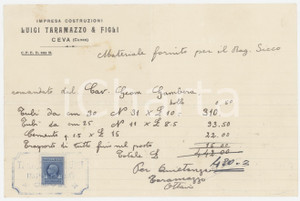 IMPRESA COSTRUZIONI
LUIGI TARAMAZZO & FIGLI
CEVA (Cuneo)
Materiale fornito per il Rag. Sicco
comandato del Cav. Gambera
Tubi da cm 30 N 31 x £ 10 310
Tubi da cm 25 N 11 x £ 8.5 93.50
Cemento q 1.5 x £ 15 22.00
Trasporto di tutto fino nel posto 15.00
Totale £ 443.00
480=
Per Quietanza
Taramazzo